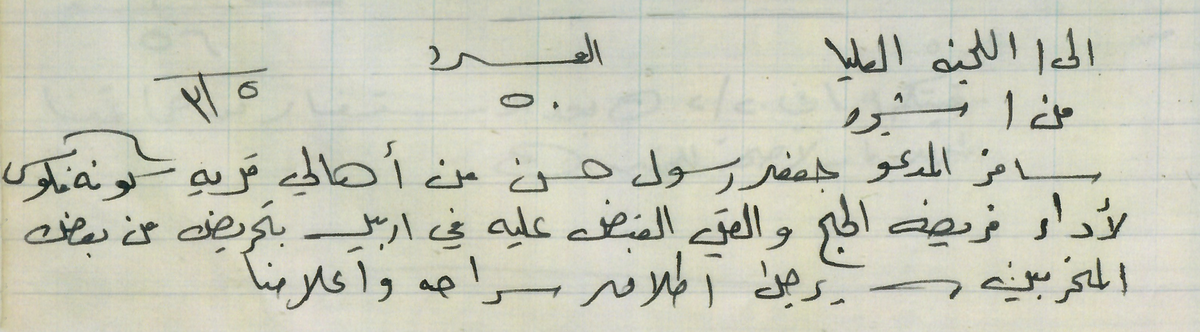 الى / اللجنه العليا العدد ٥٠ ٣/٥
من / شيرد
سافر المدعو جعفر رسول حسن من أهالي قريه كونه فلوس
لأداء فريضه الحج والقي القبض عليه في اربيل بتحريض من بعض
المخربين يرجى اطلاق سراحه واعلامنا